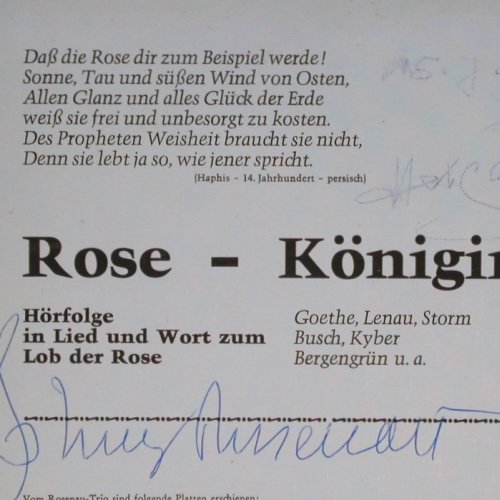 Daß die Rose dir zum Beispiel werde!
Sonne, Tau und süßen Wind von Osten,
Allen Glanz und alles Glück der Erde
weiß sie frei und unbesorgt zu kosten.
Des Propheten Weisheit braucht sie nicht,
Denn sie lebt ja so, wie jener spricht.
(Haphis - 14. Jahrhundert - persisch)
Rose - Königin
Hörfolge
in Lied und Wort zum
Lob der Rose
Goethe, Lenau, Storm
Busch, Kyber
Bergengrün u. a.
Vom Rosenau-Trio sind folgende Platten erschienen: